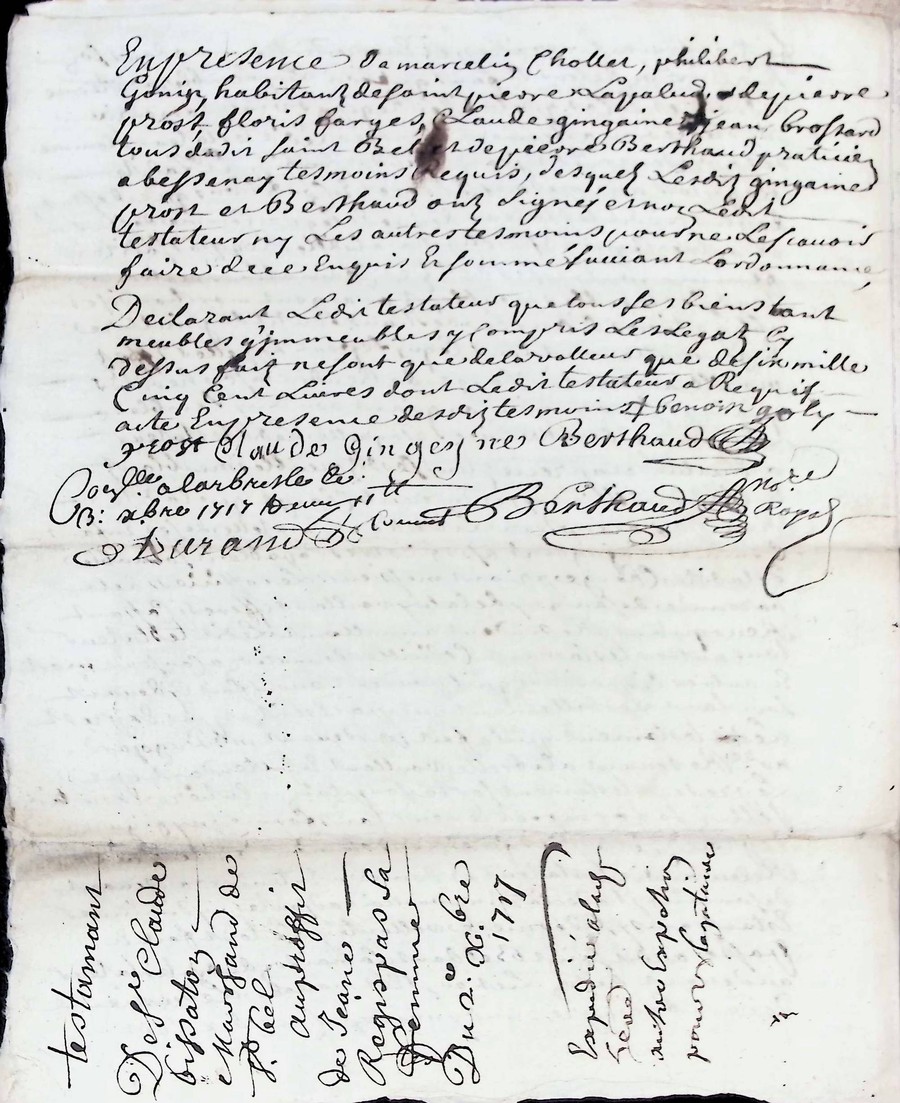 En presence de marcelin Chollet, philibert
Gonin, habitantz de saint pierre Lapalud, de pierre
prost, floris farges, Claude gingaine, jean brossard
tous dudit saint Bel, et de pierre Berthaud praticien
a bessenay tesmoins Requis, desquelz Lesditz gingaine
prost et Berthaud ont signé, et non Ledit
testateur ny Les autres tesmoins pour ne Lescavoir
faire de ce Enquis Et sommé suivant Lordonnance,
Declarant Ledit testateur que tous ses biens tant
meubles qu'jmmeubles y Compris Les Legatz cy
dessus faitz ne sont que de la valleur que de six mille
Cinq Cent Livres dont Ledit testateur a Requis
acte En presence desditz tesmoins benoin goly
prost Claude Gingesne Berthaud
a larbresle Le
3: xbre 1717
Durand Commis Berthaud nore
Royal
testamant
De sr Claude
bissaton
Marchand de
st bel
au proffit
de Jeane
Regipas sa
femme
Du 2e Xbre
1717
Expedie
autre Expedion
pour Legataire